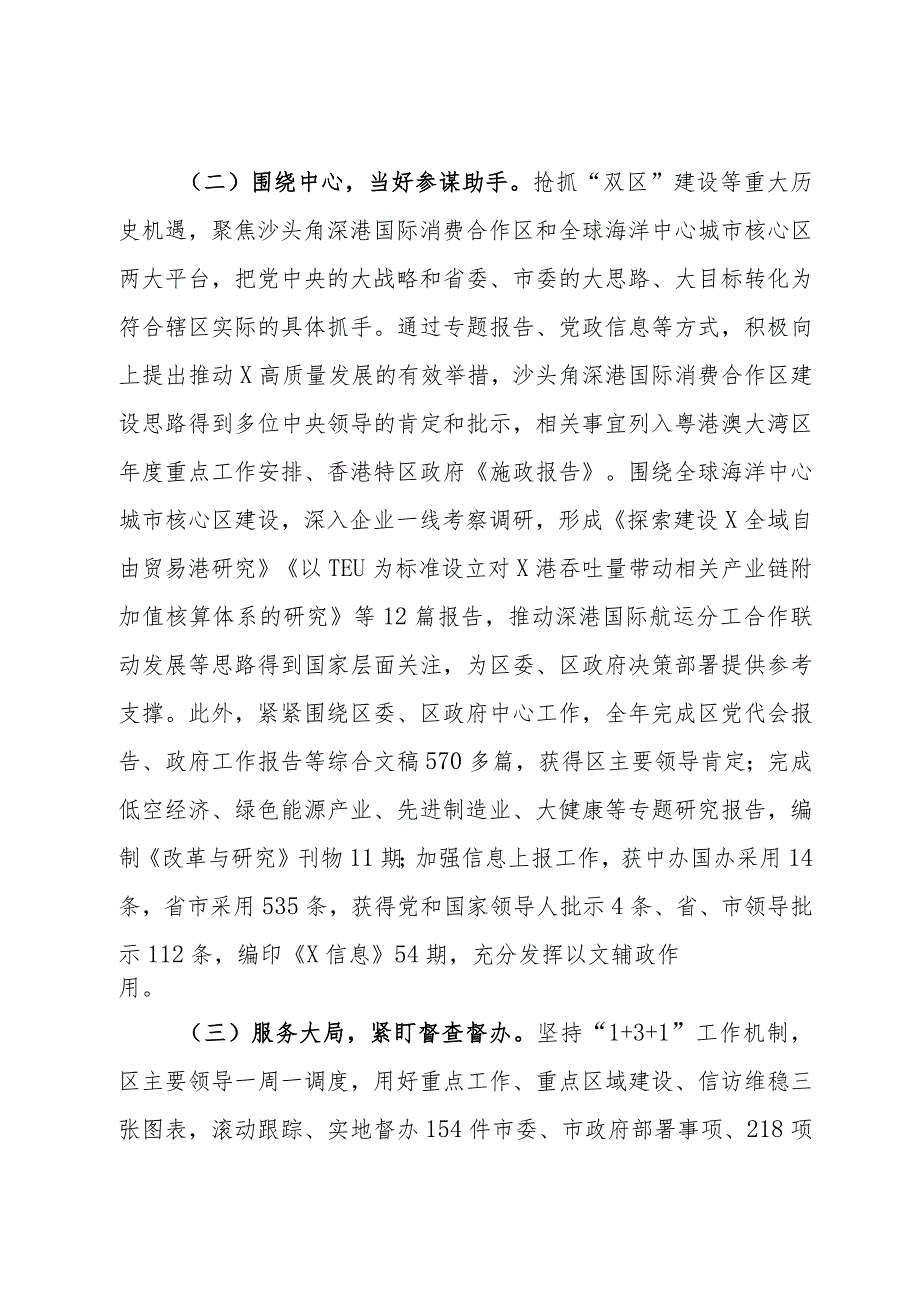 （二）围绕中心，当好参谋助手。抢抓“双区”建设等重大历
史机遇，聚焦沙头角深港国际消费合作区和全球海洋中心城市核心区
两大平台，把党中央的大战略和省委、市委的大思路、大目标转化为
符合辖区实际的具体抓手。通过专题报告、党政信息等方式，积极向
上提出推动X高质量发展的有效举措，沙头角深港国际消费合作区建
设思路得到多位中央领导的肯定和批示，相关事宜列入粤港澳大湾区
年度重点工作安排、香港特区政府《施政报告》。围绕全球海洋中心
城市核心区建设，深入企业一线考察调研，形成《探索建设X全域自
由贸易港研究》《以TEU为标准设立对X港吞吐量带动相关产业链附
加值核算体系的研究》等12篇报告，推动深港国际航运分工合作联
动发展等思路得到国家层面关注，为区委、区政府决策部署提供参考
支撑。此外，紧紧围绕区委、区政府中心工作，全年完成区党代会报
告、政府工作报告等综合文稿570多篇，获得区主要领导肯定；完成
低空经济、绿色能源产业、先进制造业、大健康等专题研究报告，编
制《改革与研究》刊物11期；加强信息上报工作，获中办国办采用14
条，省市采用535条，获得党和国家领导人批示4条、省、市领导批
示112条，编印《X信息》54期，充分发挥以文辅政作
用。
（三）服务大局，紧盯督查督办。坚持“1+3+1”工作机制，
区主要领导一周一调度，用好重点工作、重点区域建设、信访维稳三
张图表，滚动跟踪、实地督办154件市委、市政府部署事项、218项